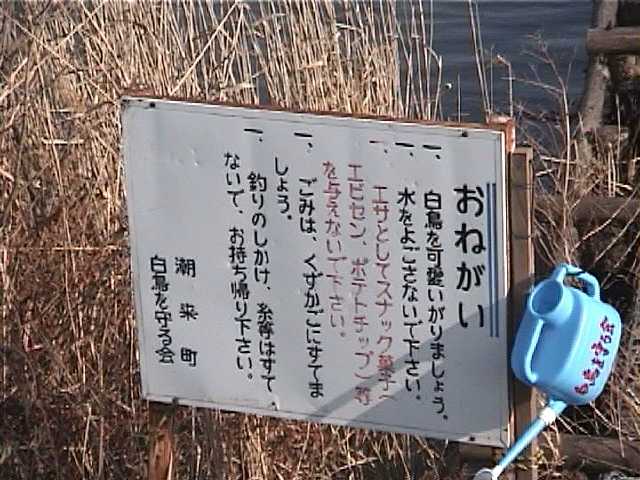 おねがい
一、白鳥を可愛いがりましょう。
一、水をよごさないで下さい。
一、エサとしてスナック菓子(
エビセン、ポテトチップ)等
を与えないで下さい。
一、ごみは、くずかごにすてま
しょう。
一、釣りのしかけ、糸等はすて
ないで、お持ち帰り下さい。
潮来町
白鳥を守る会
白鳥を守る会